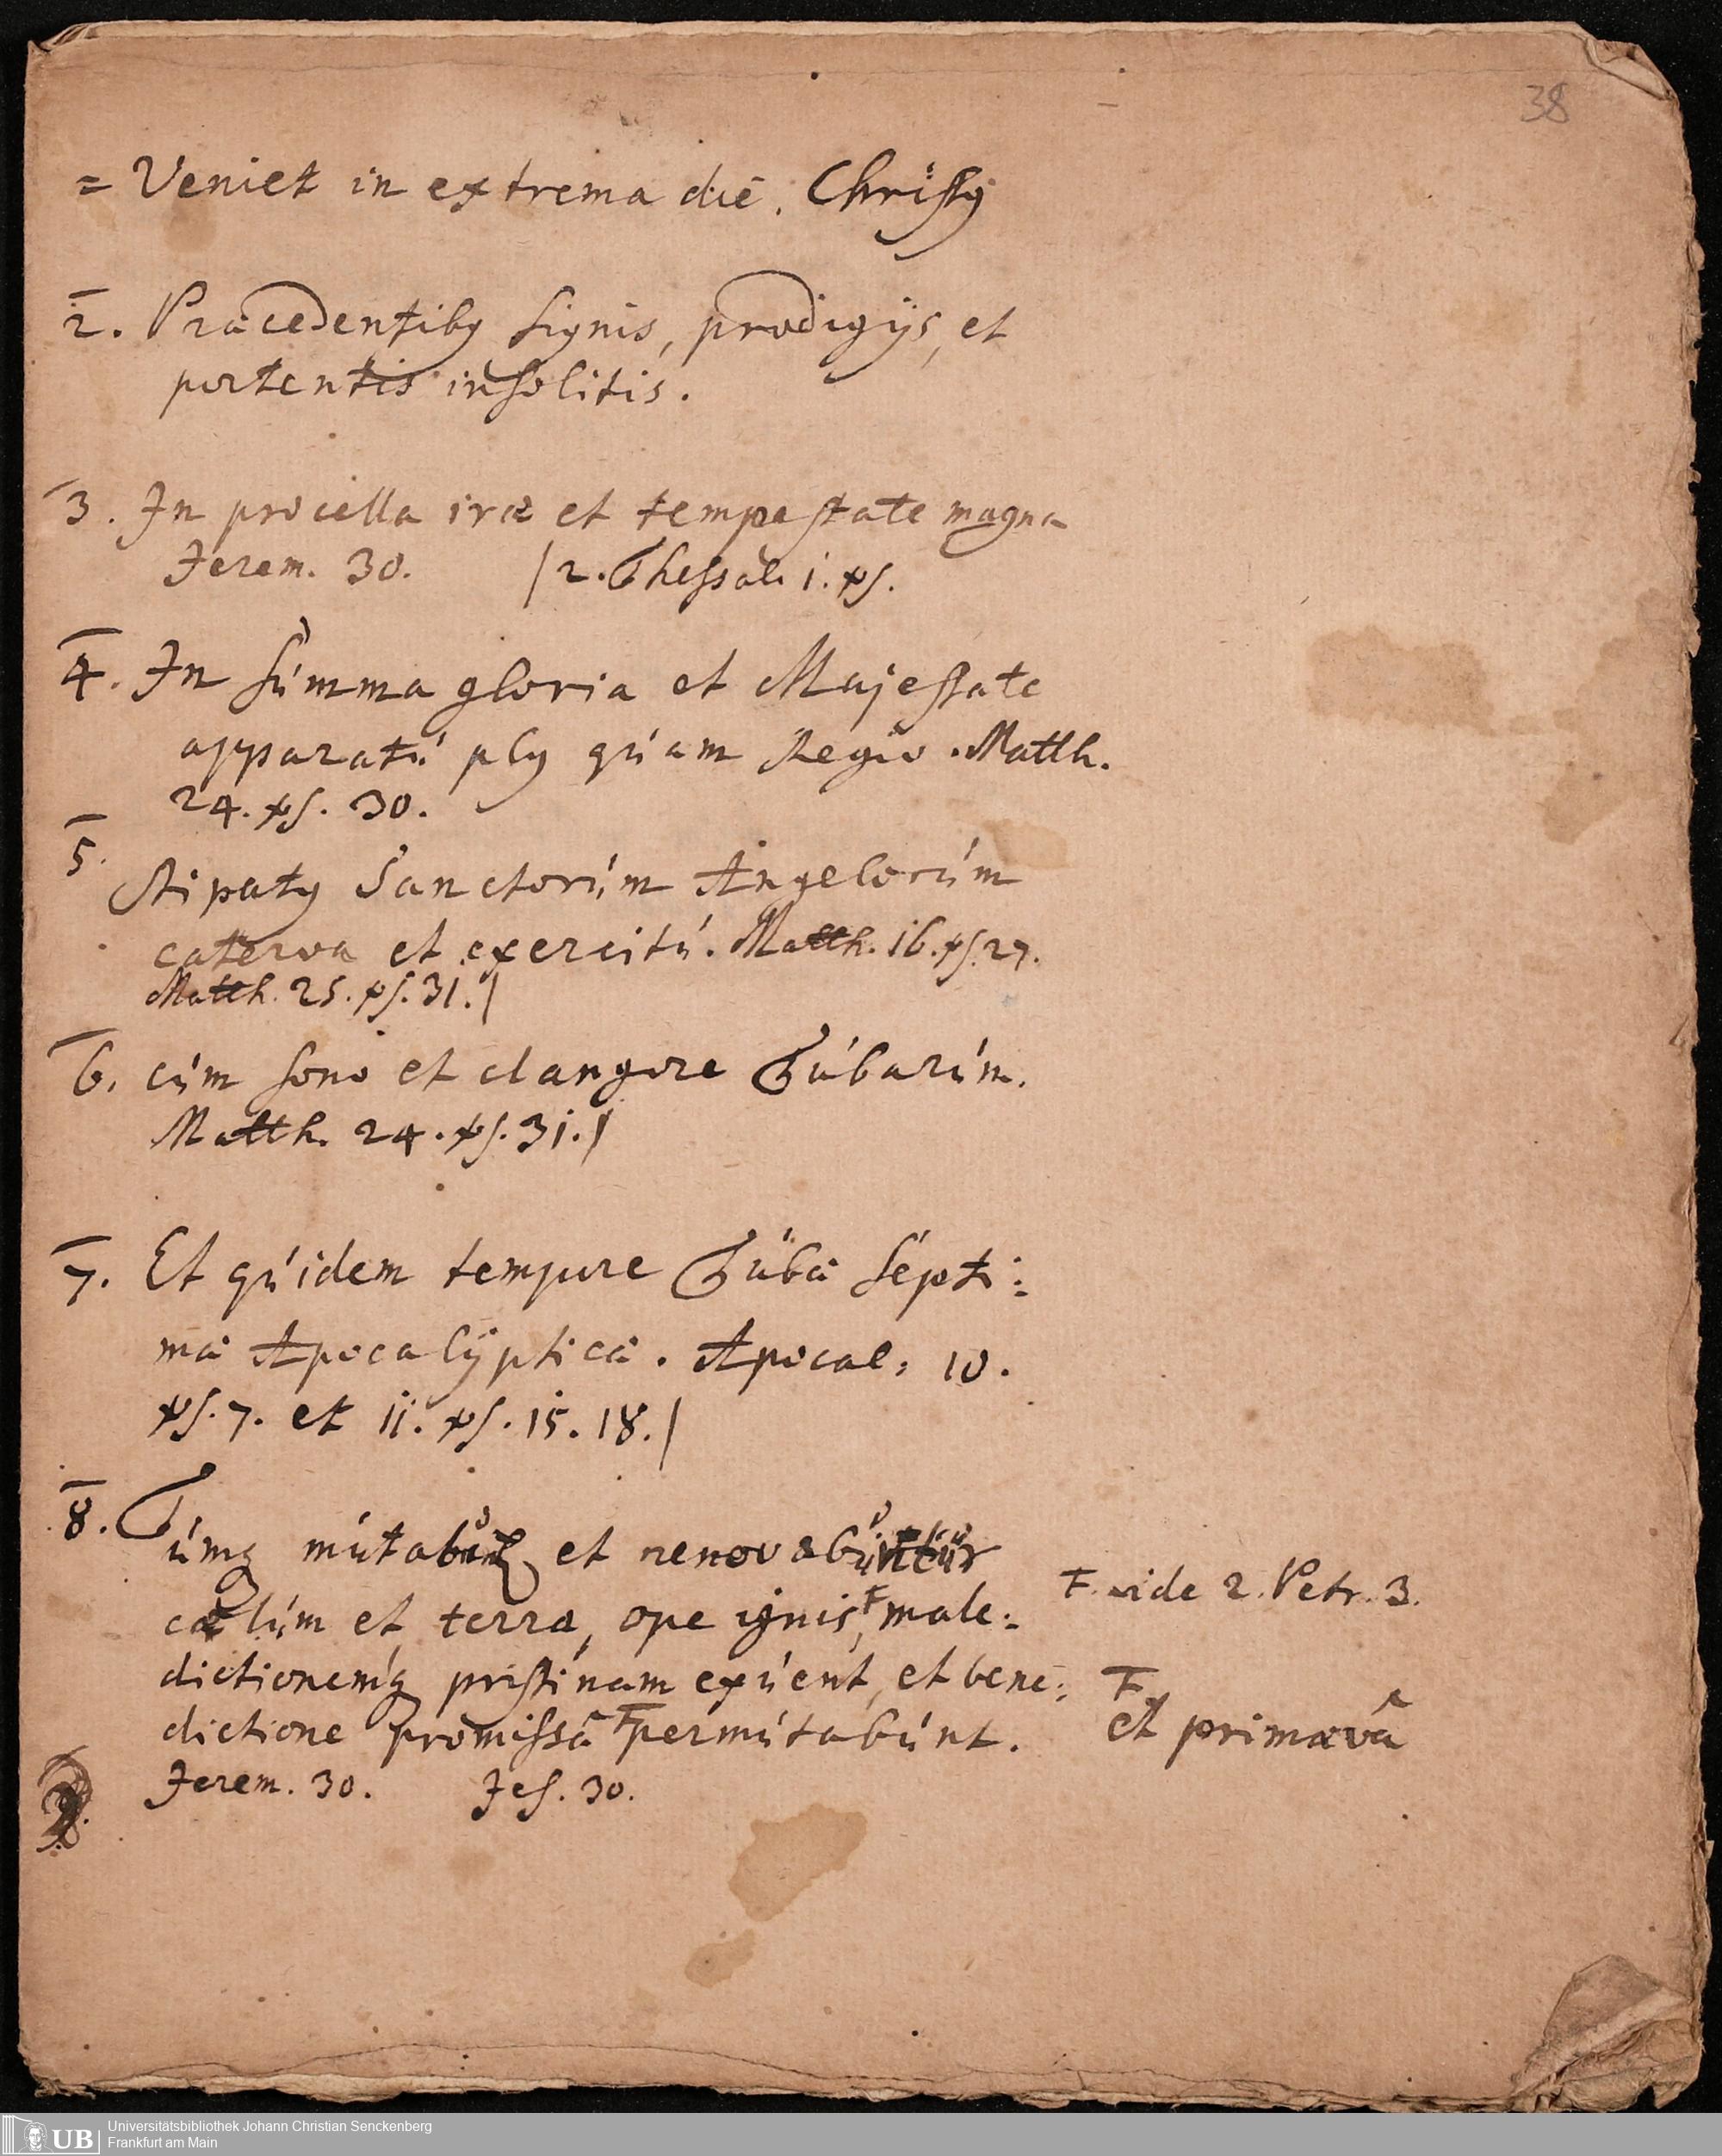 38
= Veniet in extrema die. Christꝰ
2. Præcedentibꝰ signis, prodigijs, et
portentis insolitis.
3. In procella iræ et tempestate magna
Jerem. 30. / 2. Thessal. 1. vs.
4. In summa gloria et Majestate
apparatu plꝰ quam Regio. Matth.
24. vs. 30.
5. Stipatꝰ Sanctorum Angelorum
caterva et exercitu. Matth. 16. vs. 27.
Matth. 25. vs. 31. /
6. cum sono et clangore Tubarum.
Matth. 24. vs. 31. /
7. Et quidem tempore Tubæ Septi:
mæ Apocalÿpticæ. Apocal: 10.
vs. 7. et 11. vs. 15. 18. /
8. Tumqꝫ mutabunt et renovabuntur
cælum et terra, ope ignis, Ŧ male:
dictionemqꝫ pristinam exuent, et bene:
dictione promissâ Ŧ permutabunt.
Jerem. 30. Jes. 30.
Ŧ. vide 2. Petr. 3.
Ŧ
et primævâ
UB
Universitätsbibliothek Johann Christian Senckenberg
Frankfurt am Main